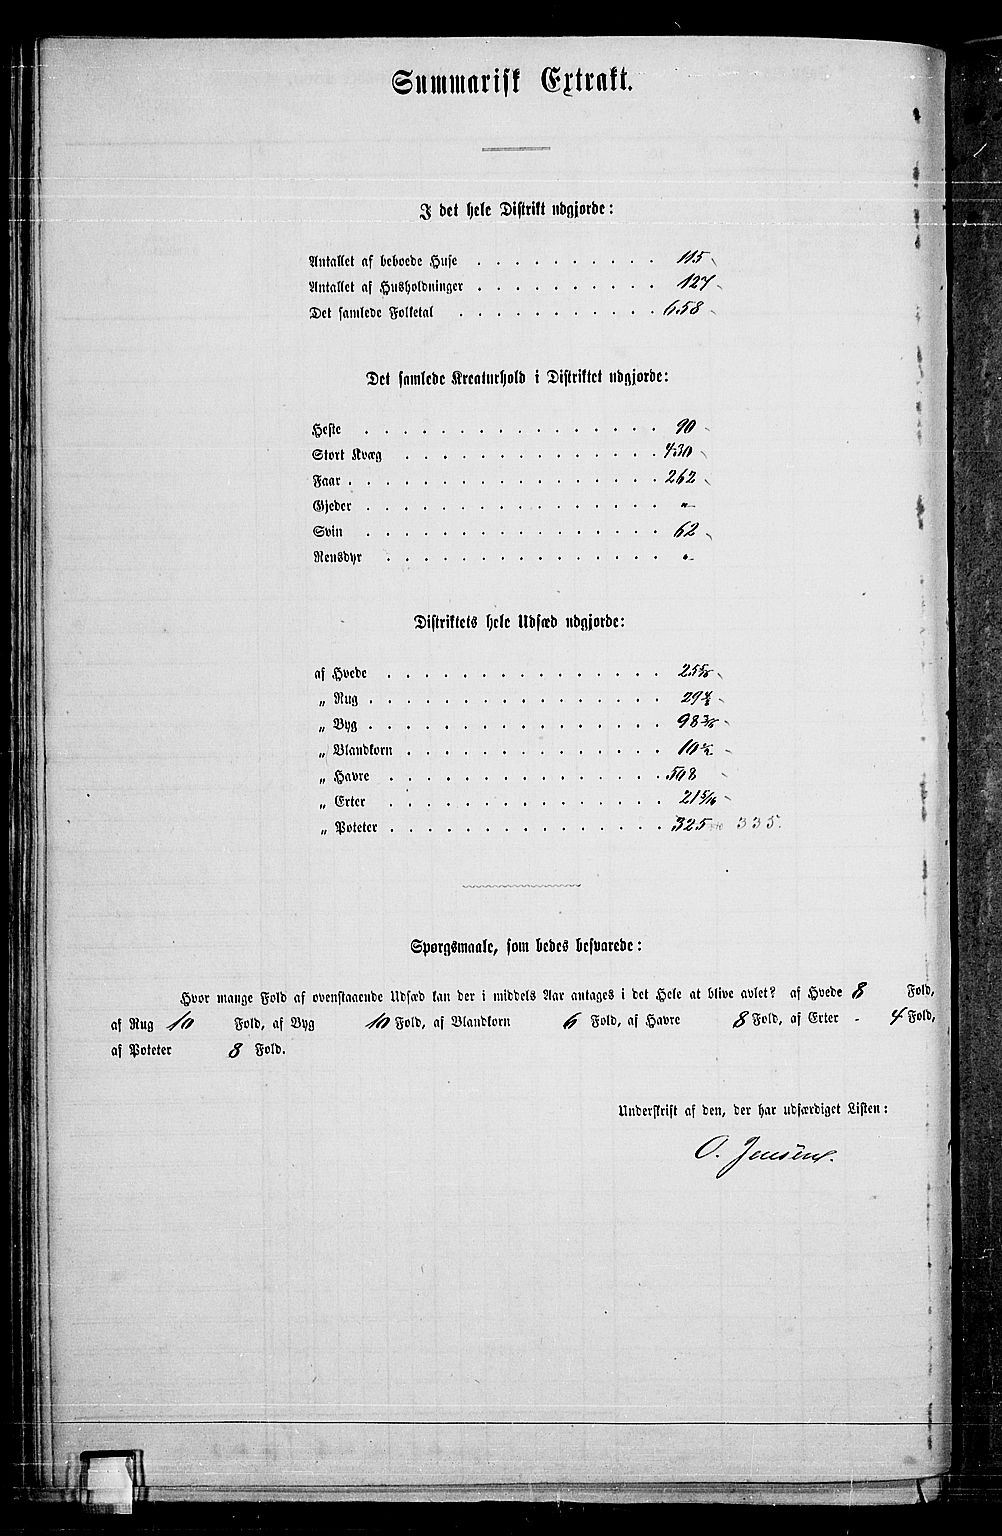 Summarisk Extrakt.
I det hele Distrikt udgjorde:
Antallet af beboede Huse . . . . . . . . . . 115
Antallet af Husholdninger . . . . . . . . . . 127
Det samlede Folketal . . . . . . . . . . . 658
Det samlede Kreaturhold i Distriktet udgjorde:
Heste . . . . . . . . . . . . . . . . 90
Stort Kvæg . . . . . . . . . . . . . . 430
Faar . . . . . . . . . . . . . . . . 262
Gjeder . . . . . . . . . . . . . . . . "
Svin . . . . . . . . . . . . . . . . 62
Rensdyr . . . . . . . . . . . . . . . "
Distriktets hele Udsæd udgjorde:
af Hvede . . . . . . . . . . . . . . . 25
„ Rug . . . . . . . . . . . . . . . . 29
„ Byg . . . . . . . . . . . . . . . . 98
„ Blandkorn . . . . . . . . . . . . . . 10
„ Havre . . . . . . . . . . . . . . . 508
„ Erter . . . . . . . . . . . . . . . 21 5/16
„ Poteter . . . . . . . . . . . . . . . 325 335.
Spørgsmaale, som bedes besvarede:
Hvor mange Fold af ovenstaaende Udsæd kan der i middels Aar antages i det Hele at blive avlet? af Hvede 8 Fold,
af Rug 10 Fold, af Byg 10 Fold, af Blandkorn 6 Fold, af Havre 8 Fold, af Erter - 4 Fold,
af Poteter 8 Fold.
Underskrift af den, der har udfærdiget Listen:
O. Jensen.